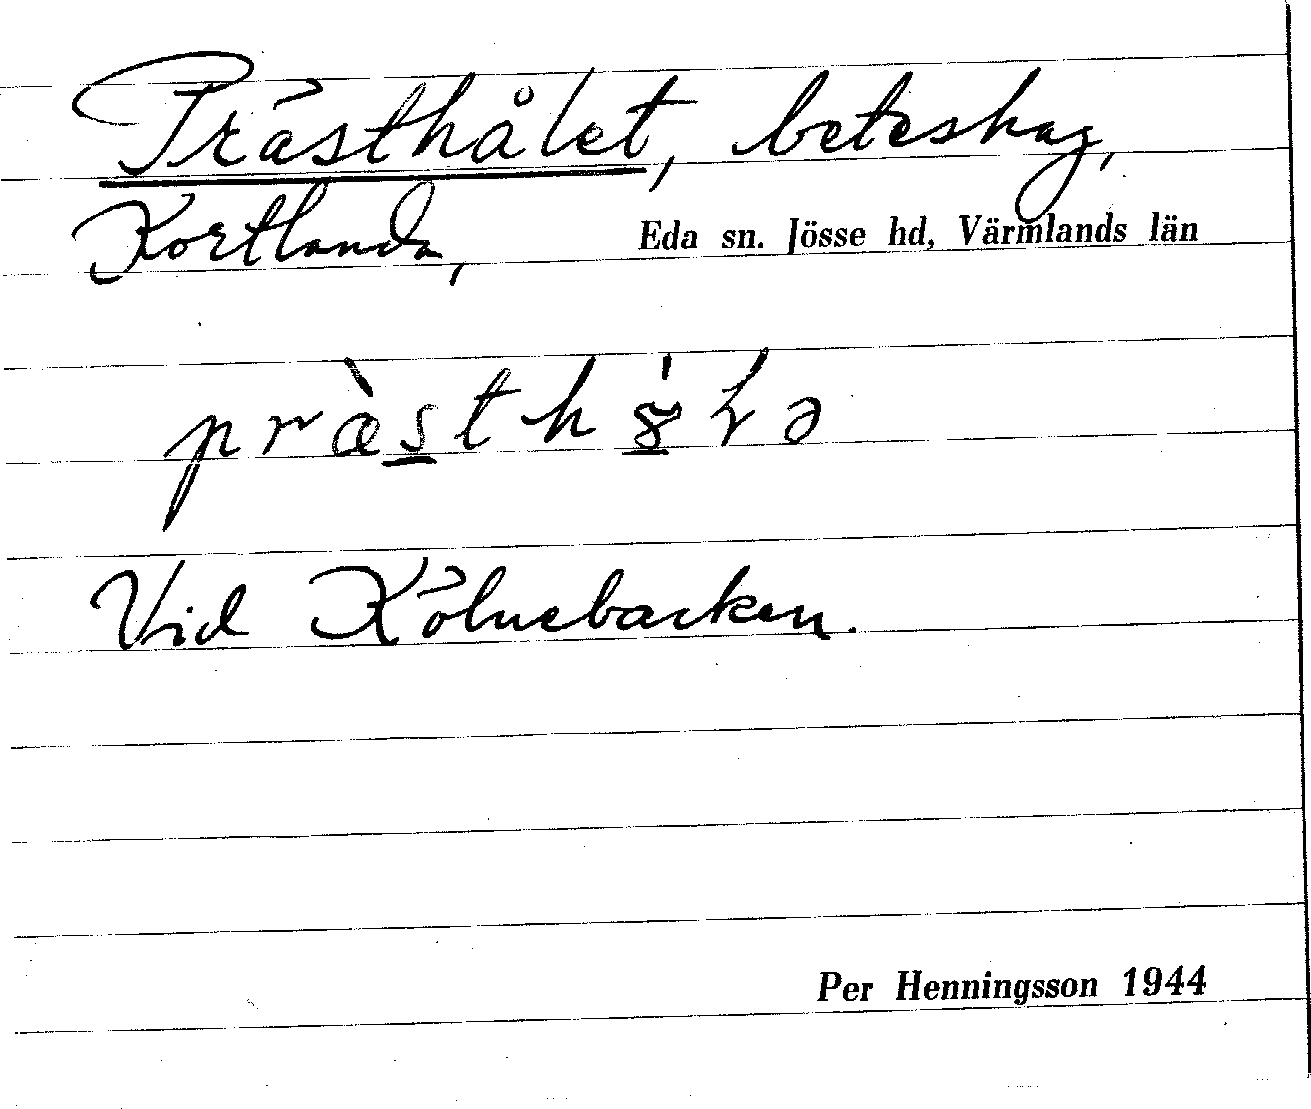 Prästhålet, beteshag,
Kortlanda, Eda sn. Jösse hd, Värmlands län
Vid Kölnebacken.
Per Henningsson 1944